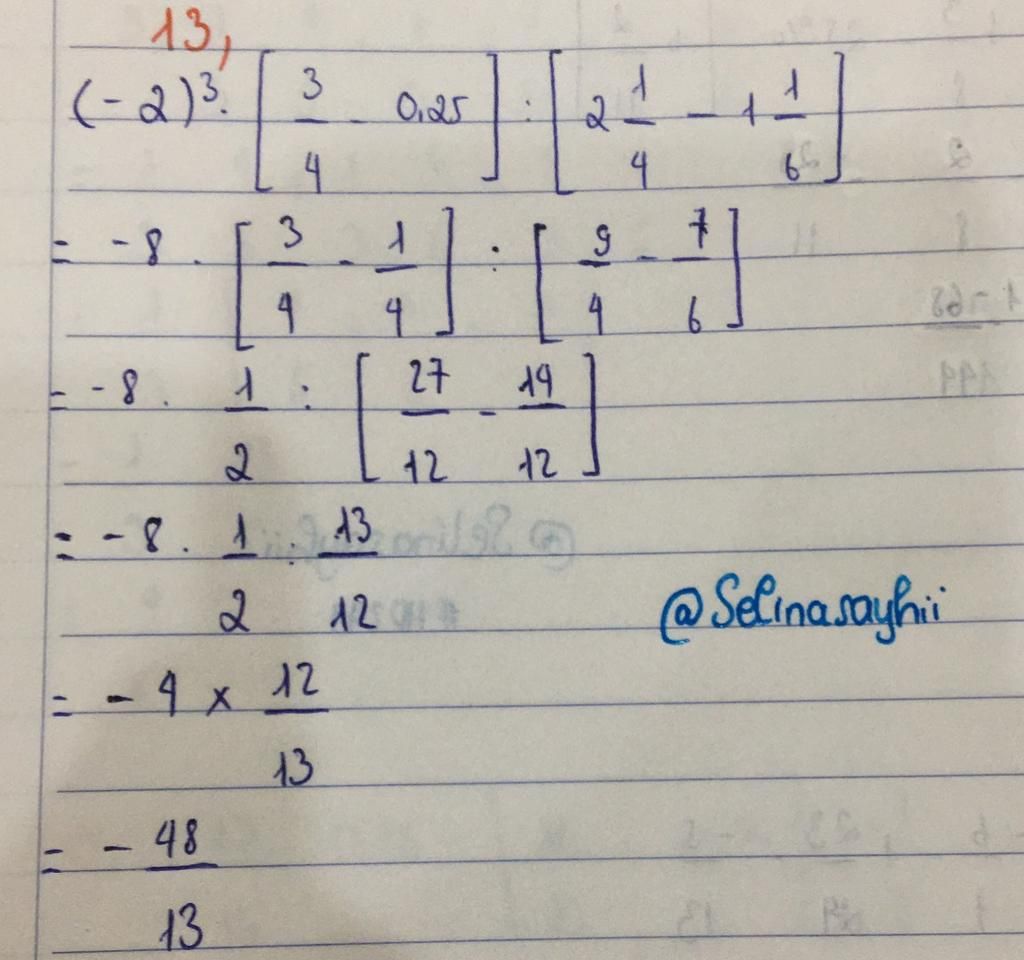 13,
(-2)³· [3/4 - 0,25] : [2 1/4 - 1 1/6]
= -8 . [3/4 - 1/4] : [9/4 - 7/6]
= -8 . 1/2 : [27/12 - 14/12]
= -8 . 1/2 : 13/12
@Selinasayhii
= -4 x 12/13
= - 48/13